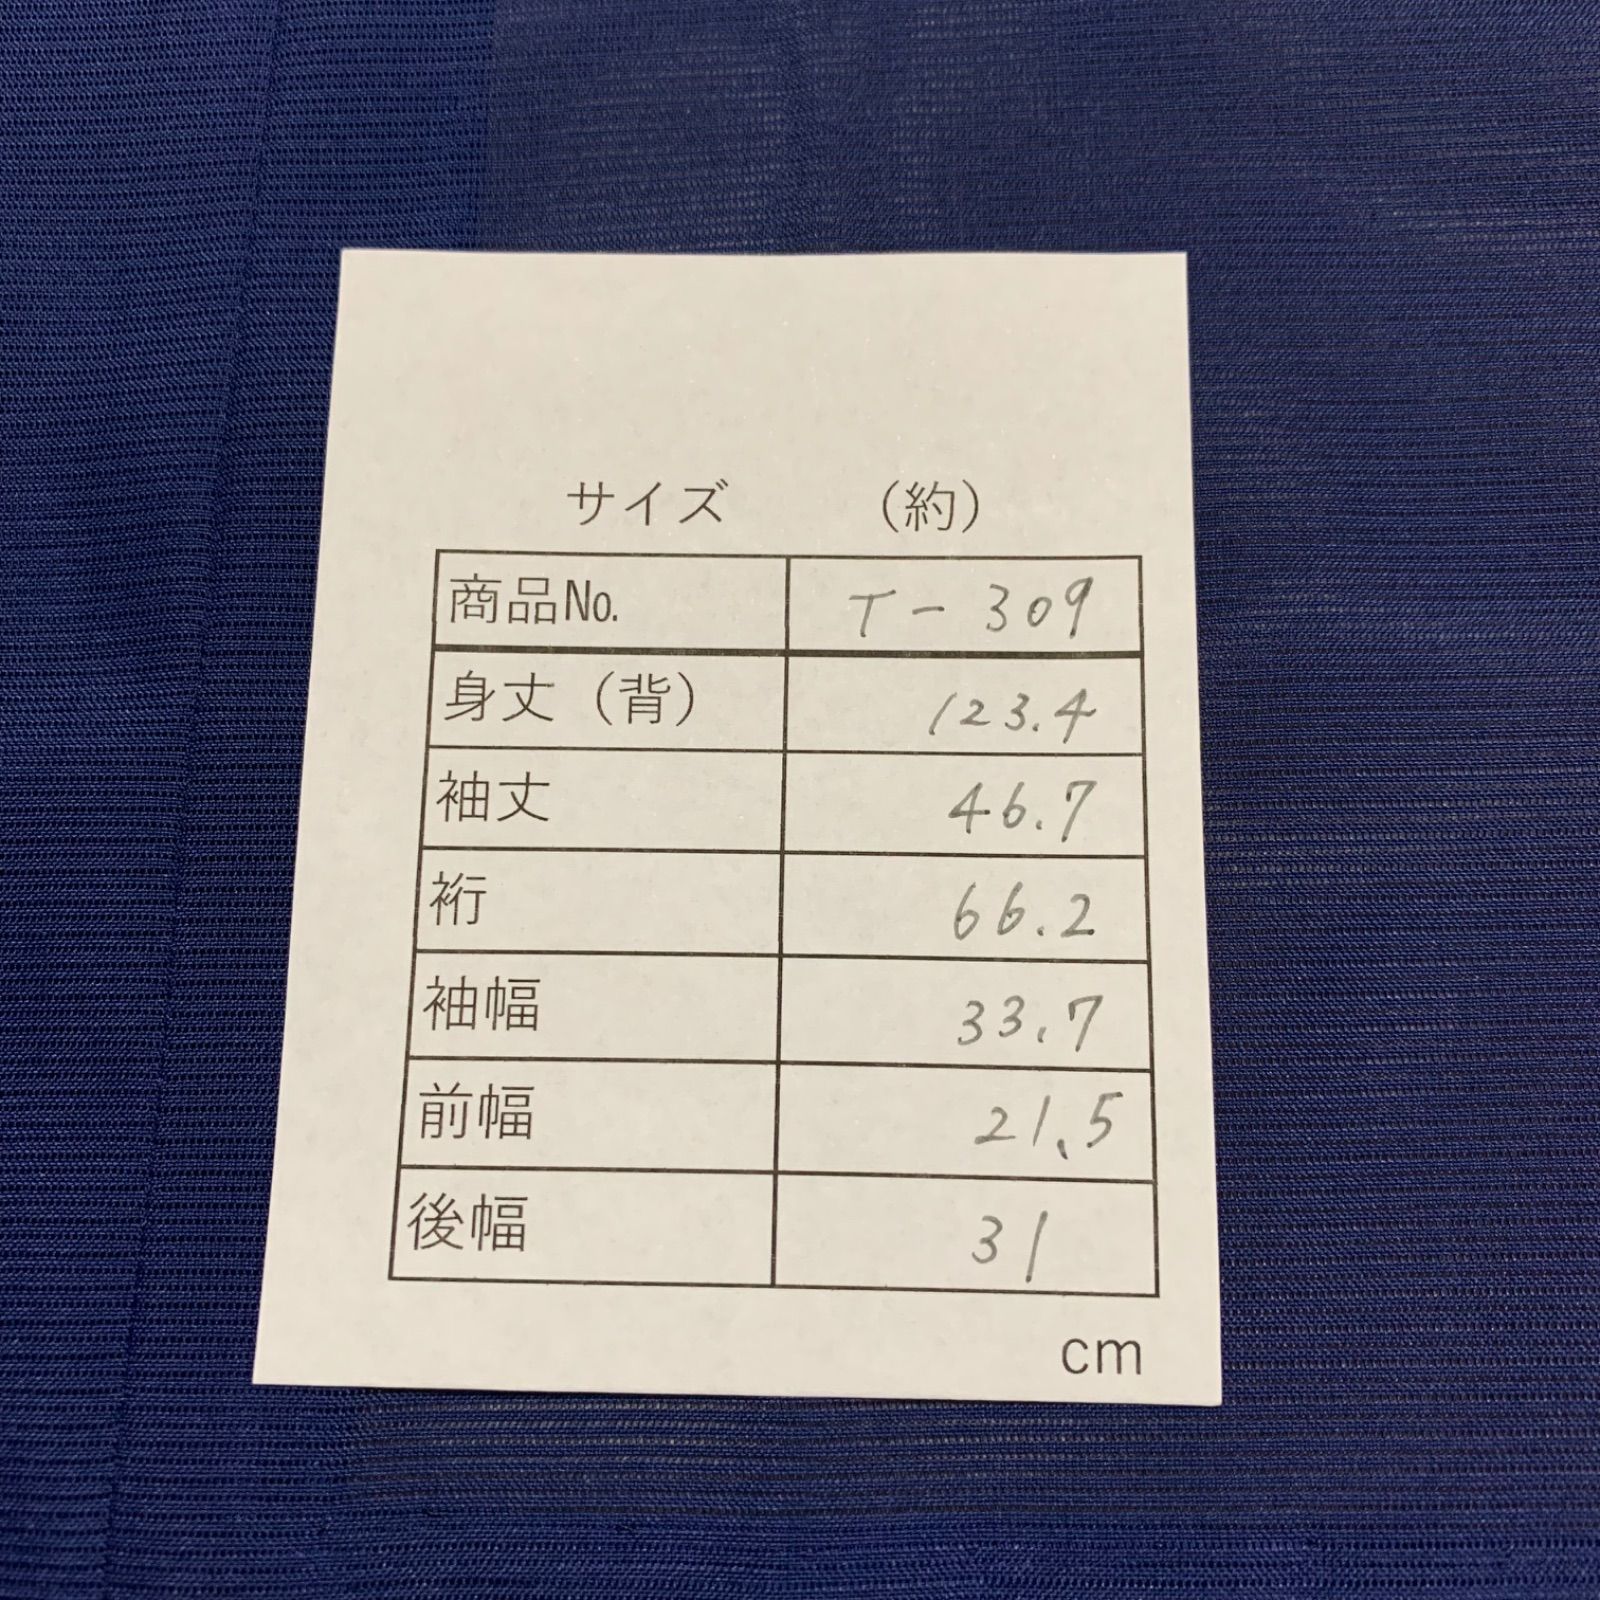 サイズ （約）
商品No. T-309
身丈（背） 123.4
袖丈 46.7
裄 66.2
袖幅 33.7
前幅 21.5
後幅 31
cm